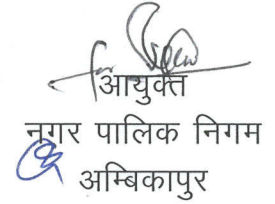 for
आयुक्त
नगर पालिक निगम
अम्बिकापुर